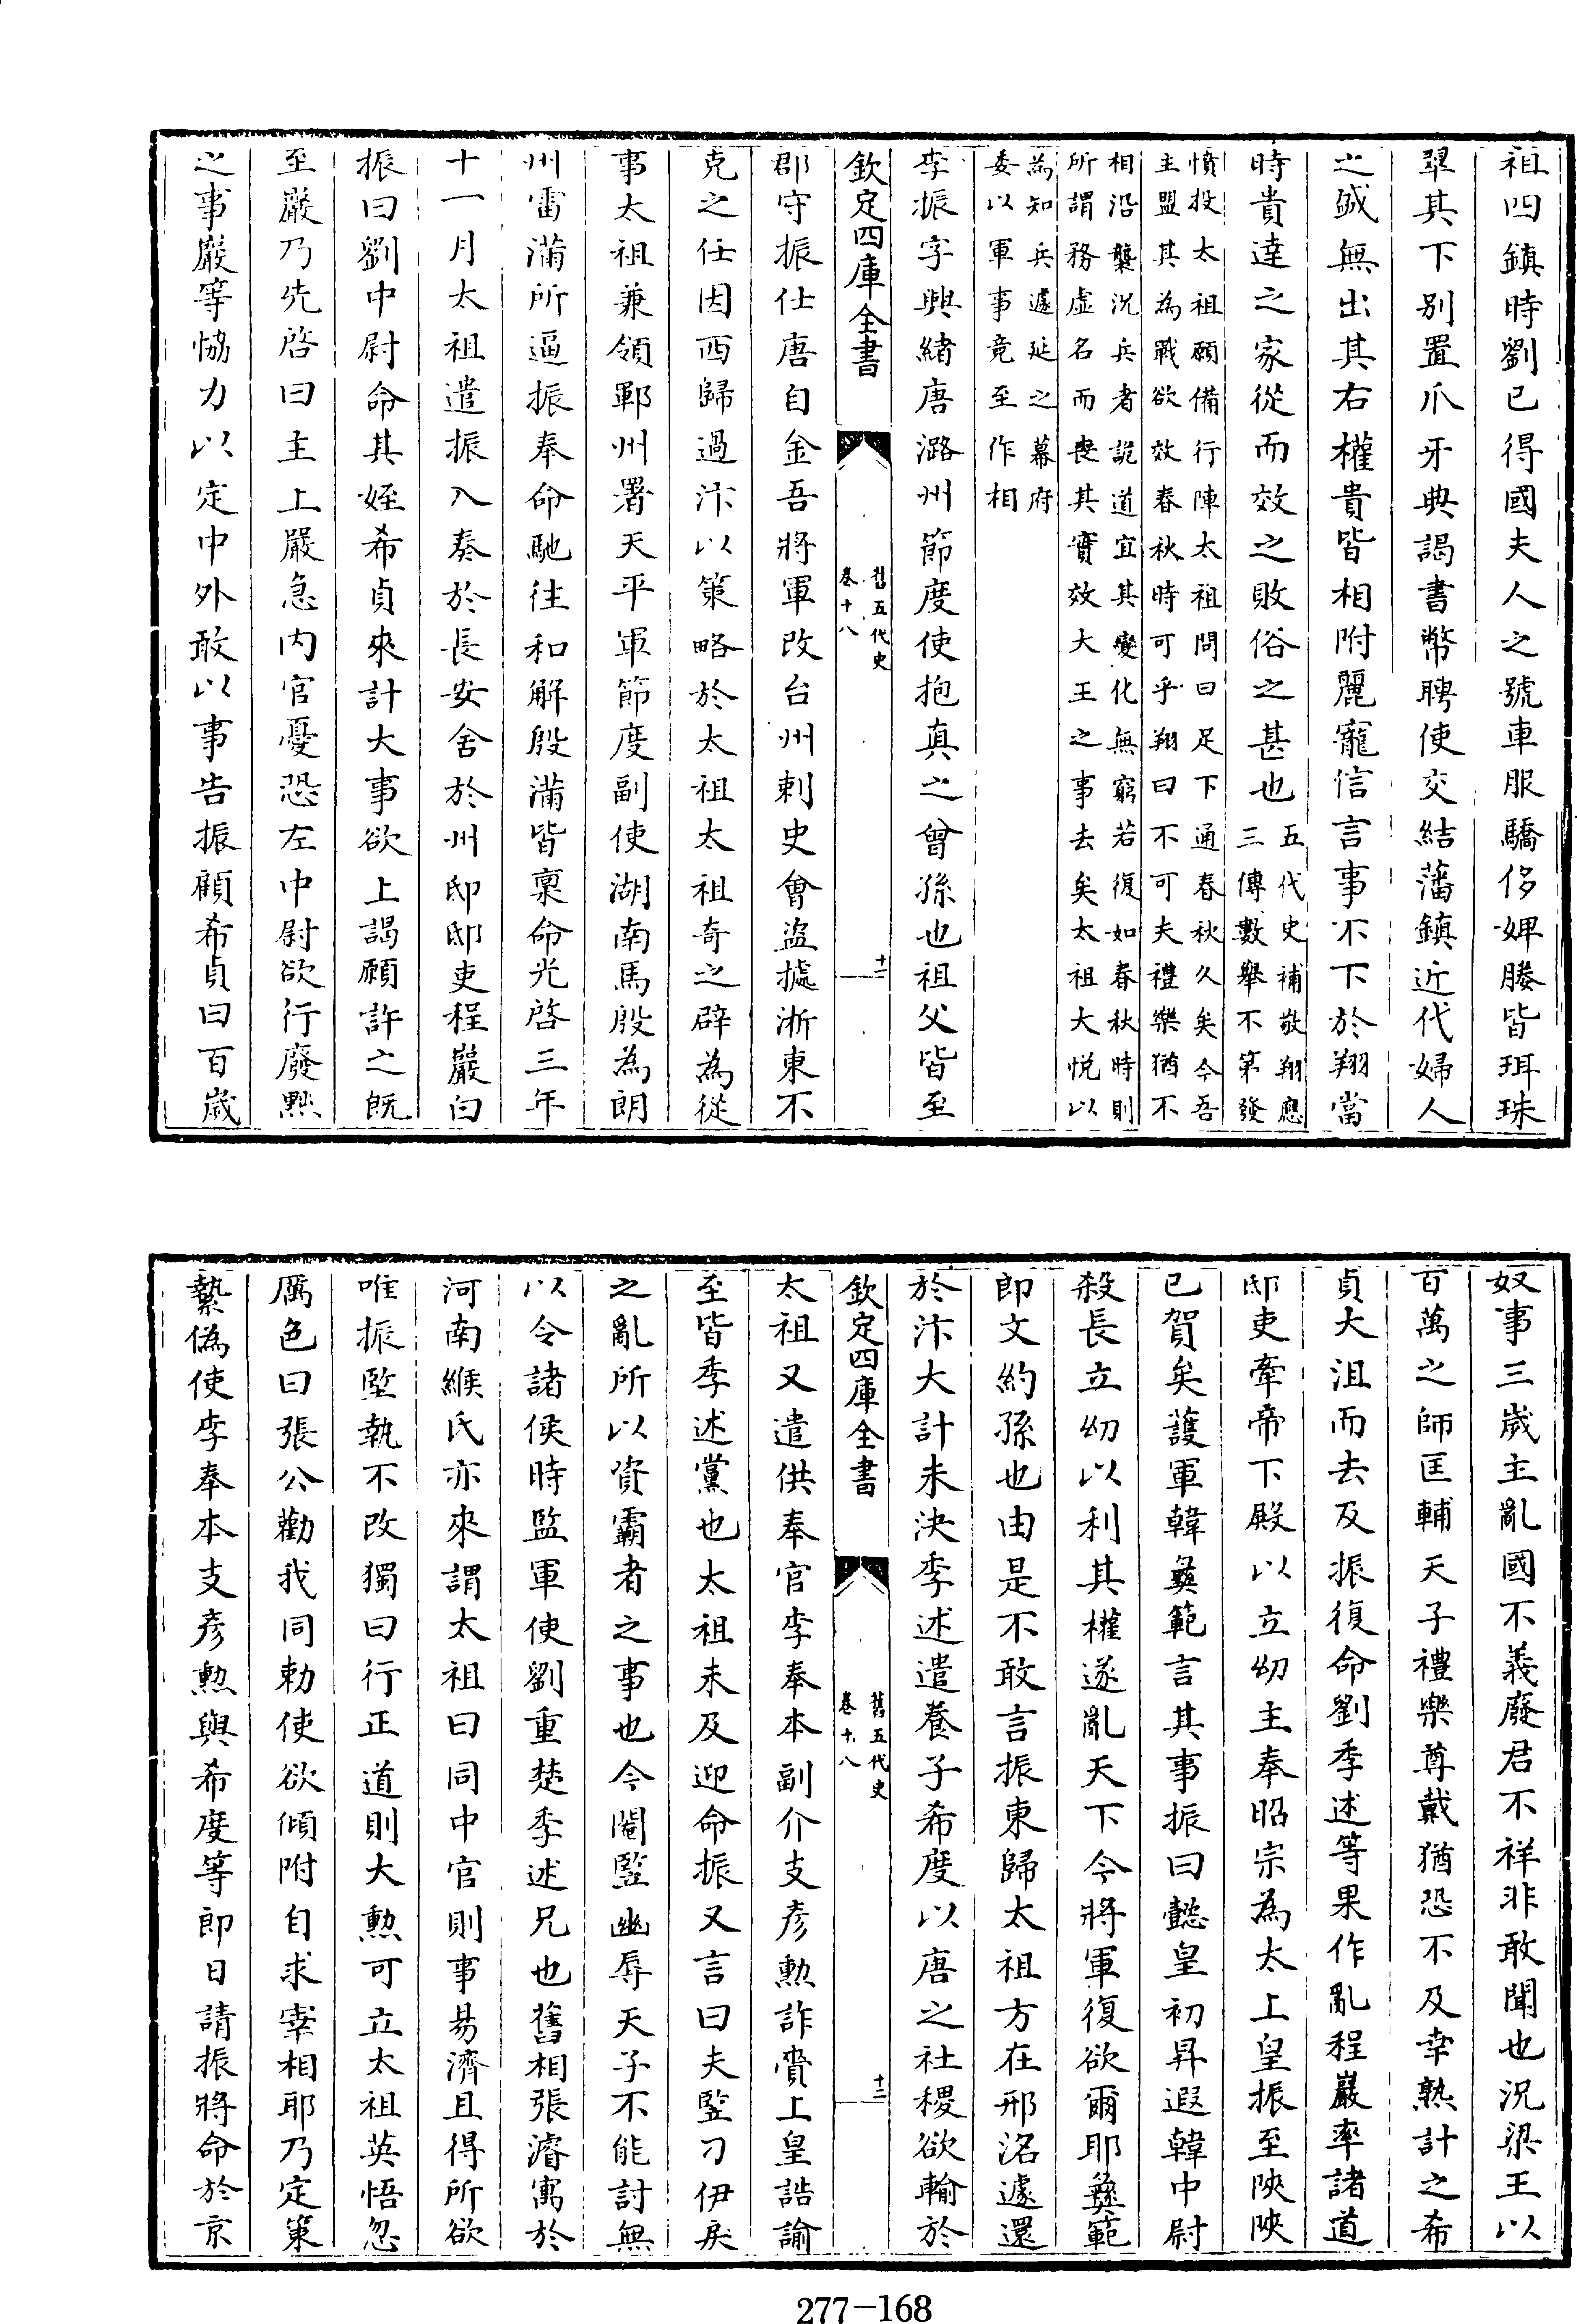 祖四鎮時劉已得國夫人之號車服驕侈婢媵皆珥珠
翠其下別置爪牙典謁書幣聘使交結藩鎮近代婦人
之盛無出其右權貴皆相附麗寵信言事不下於翔當
時貴達之家從而效之敗俗之甚也
五代史補敬翔應
三傳數舉不第發
憤投太祖願備行陣太祖問曰足下通春秋久矣今吾
主盟其為戰欲效春秋時可乎翔曰不可夫禮樂猶不
相沿襲況兵者詭道宜其變化無窮若復如春秋時則
所謂務虛名而喪其實效大王之事去矣太祖大悅以
為知兵遽延之幕府
委以軍事竟至作相
李振字興緒唐潞州節度使抱真之曾孫也祖父皆至
欽定四庫全書
舊五代史
卷十八
十一
郡守振仕唐自金吾將軍改台州刺史會盜據浙東不
克之任因西歸過汴以策略於太祖太祖奇之辟為從
事太祖兼領鄆州署天平軍節度副使湖南馬殷為朗
州雷滿所逼振奉命馳往和解殷滿皆稟命光啓三年
十一月太祖遣振入奏於長安舍於州邸邸吏程巖白
振曰劉中尉命其姪希貞來計大事欲上謁願許之既
至巖乃先啓曰主上嚴急內官憂恐左中尉欲行廢黜
之事巖等恊力以定中外敢以事告振顧希貞曰百歲
奴事三歲主亂國不義廢君不祥非敢聞也況梁王以
百萬之師匡輔天子禮樂尊戴猶恐不及幸熟計之希
貞大沮而去及振復命劉季述等果作亂程巖率諸道
邸吏牽帝下殿以立幼主奉昭宗為太上皇振至陝陝
已賀矣護軍韓彝範言其事振曰懿皇初昇遐韓中尉
殺長立幼以利其權遂亂天下今將軍復欲爾耶彝範
即文約孫也由是不敢言振東歸太祖方在邢洺遽還
於汴大計未決季述遣養子希度以唐之社稷欲輸於
欽定四庫全書
舊五代史
卷十八
十二
太祖又遣供奉官李奉本副介支彥勲詐齎上皇誥諭
至皆季述黨也太祖未及迎命振又言曰夫豎刁伊戾
之亂所以資霸者之事也今閹豎幽辱天子不能討無
以令諸侯時監軍使劉重楚季述兄也舊相張濬寓於
河南緱氏亦來謂太祖曰同中官則事易濟且得所欲
唯振堅執不改獨曰行正道則大勲可立太祖英悟忽
厲色曰張公勸我同勅使欲傾附自求宰相耶乃定策
縶偽使李奉本支彥勲與希度等即日請振將命於京
277-168